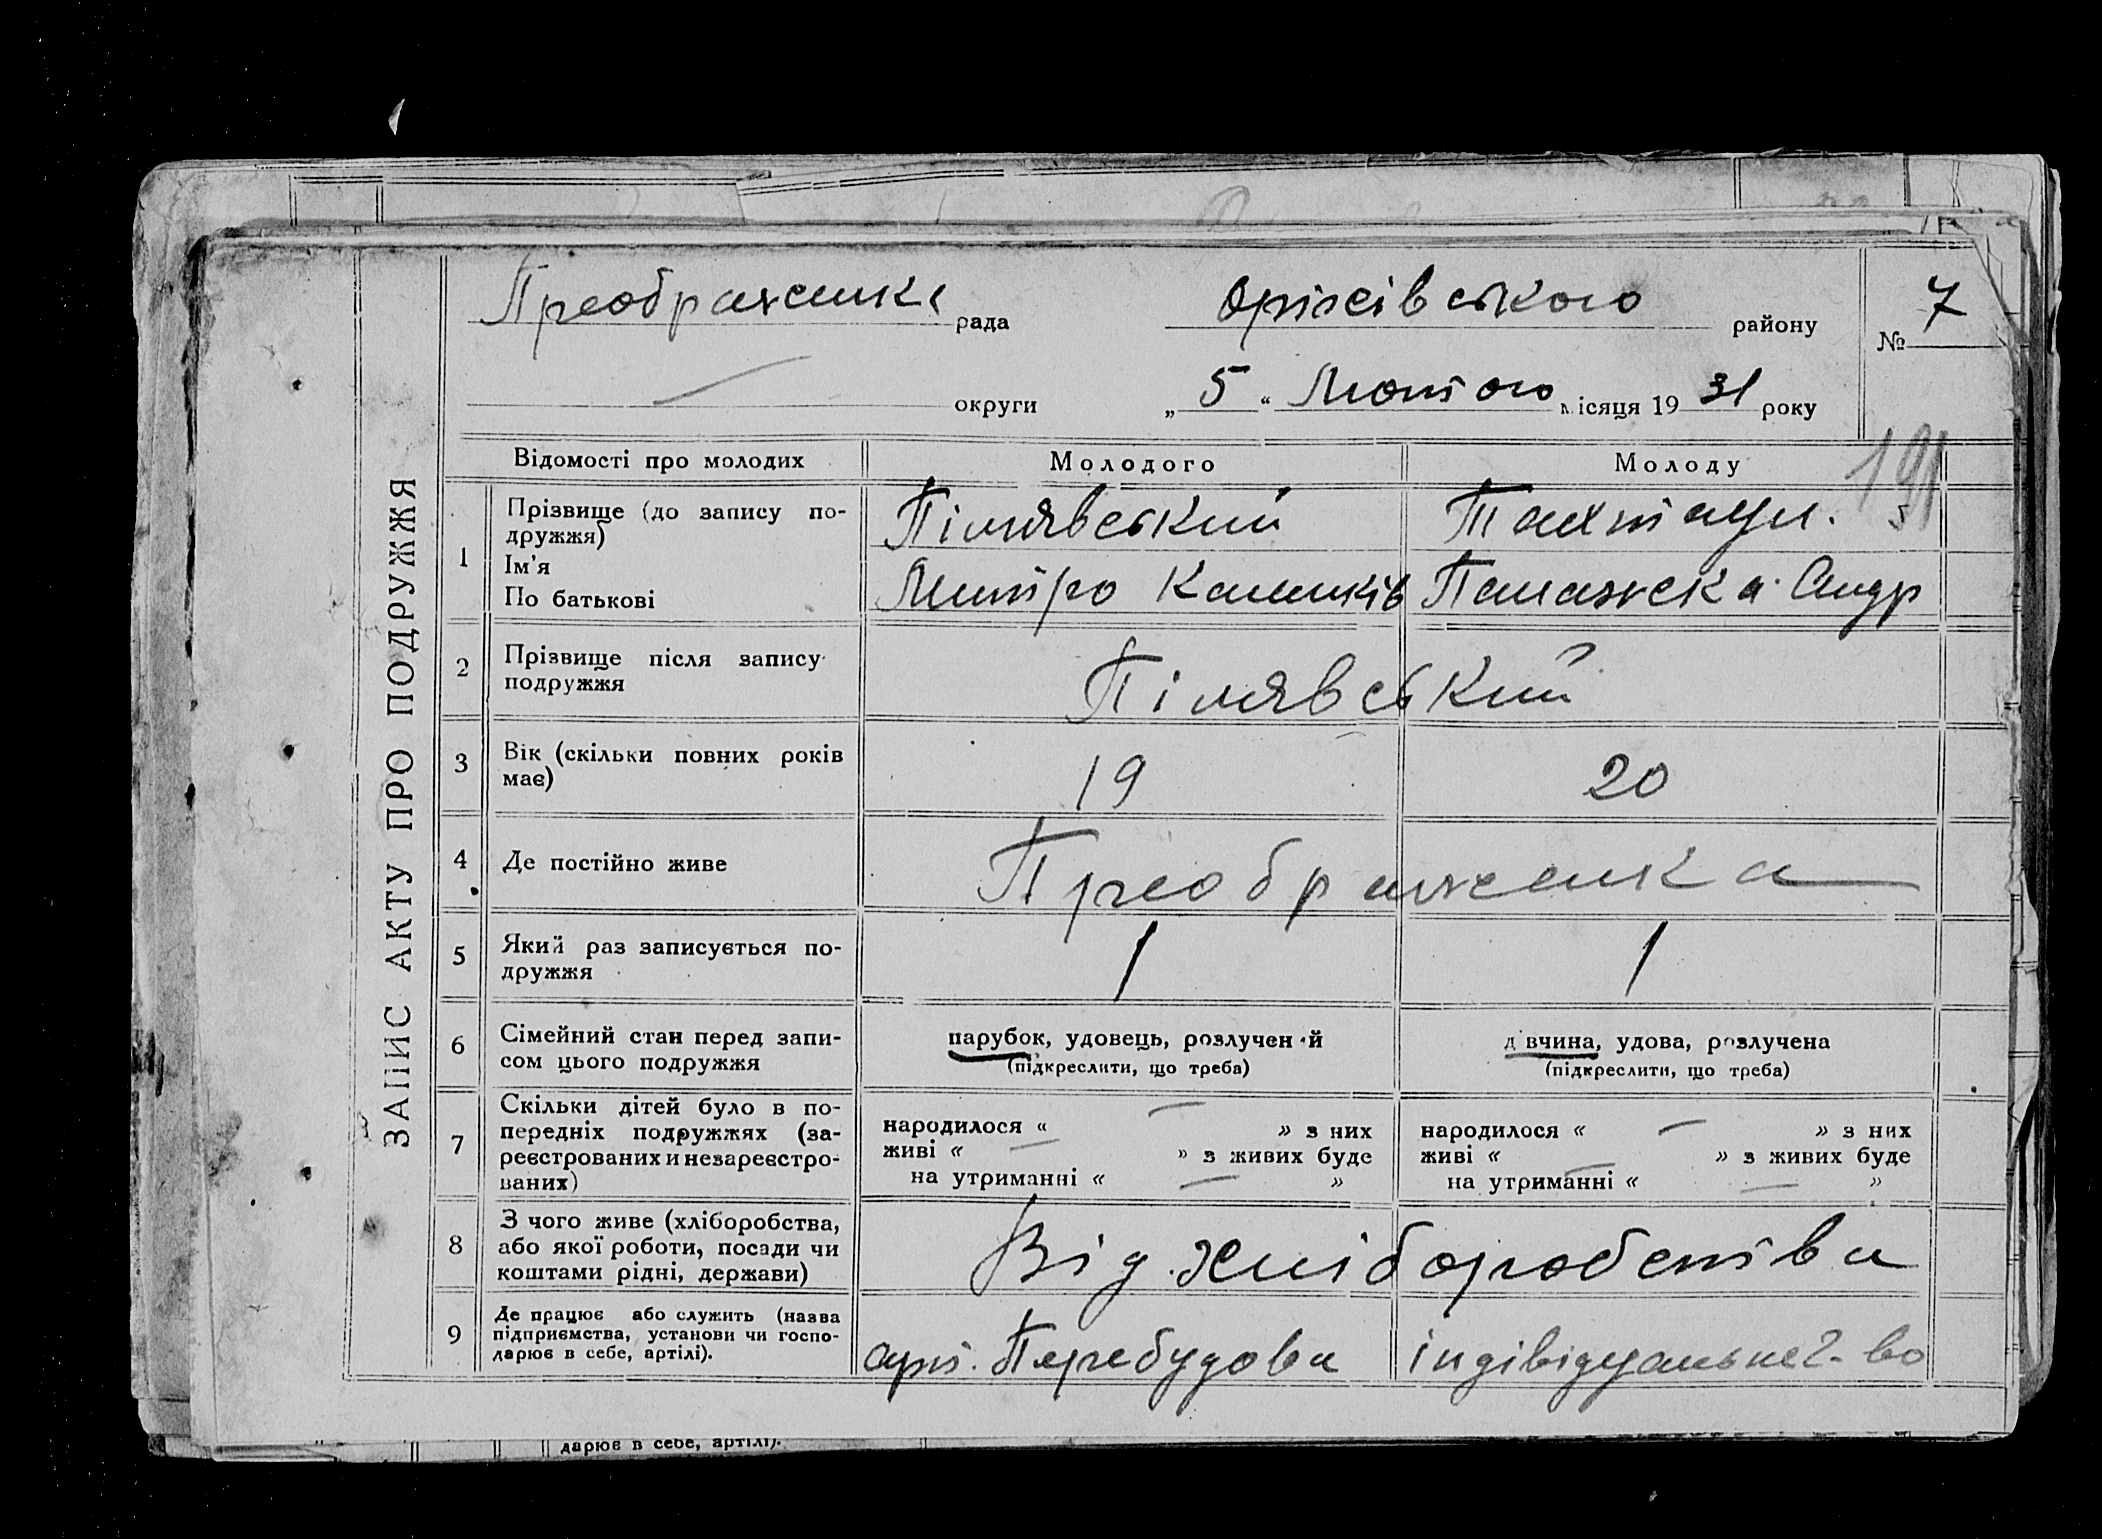 ЗАПИС АКТУ ПРО ПОДРУЖЖЯ
Преображенка рада Оріхівського району № 7
округи „ 5 “ Лютого місяця 19 31 року
191
Відомості про молодих Молодого Молоду
1 Прізвище (до запису по-
дружжя) Пілявський Тахтаул.
Ім'я
По батькові Митро Калинків Палажека Андр
2 Прізвище після запису
подружжя Пілявський
3 Вік (скільки повних років
має) 19 20
4 Де постійно живе Преображенка
5 Який раз записується по-
дружжя 1 1
6 Сімейний стан перед запи-
сом цього подружжя парубок, удовець, розлучений дівчина, удова, розлучена
(підкреслити, що треба) (підкреслити, що треба)
7 Скільки дітей було в по-
передніх подружжях (за-
реєстрованих и незареєстро-
ваних) народилося « — » з них народилося « — » з них
живі « — » з живих буде живі « — » з живих буде
на утриманні « — » на утриманні « — »
8 З чого живе (хліборобства,
або якої роботи, посади чи
коштами рідні, держави) Від хліборобства
9 Де працює або служить (назва
підприємства, установи чи госпо-
дарює в себе, артілі). арт. Перебудова індівідуальне г-во
дарює в себе, артілі).